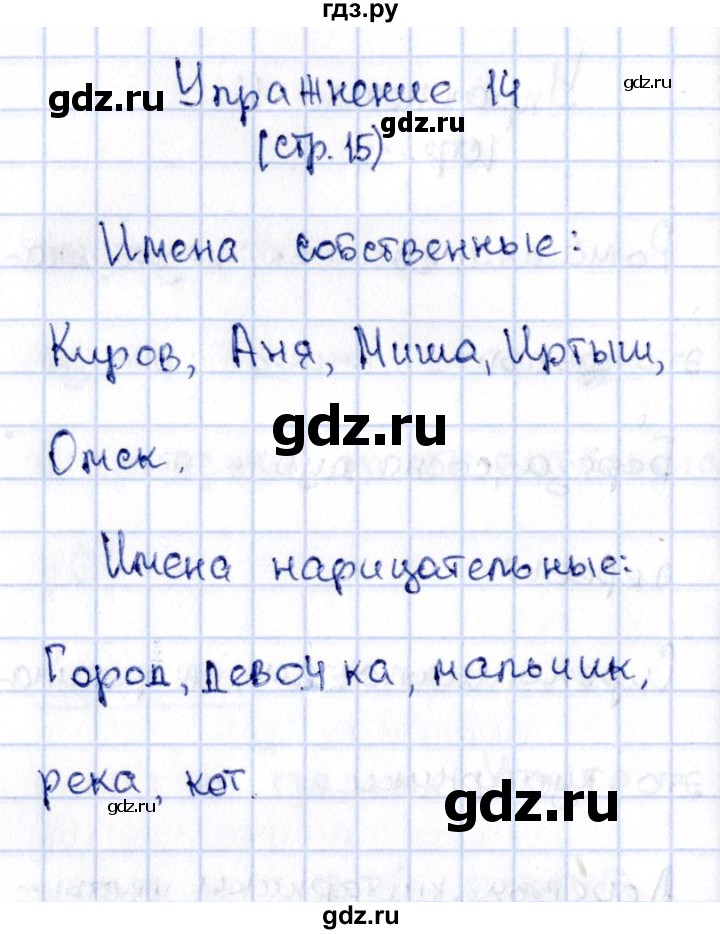 гдз.ру
Упражнение 14
gdz.ru
gdz.ru
gdz.ru
(стр. 15)
Имена собственные:
Киров, Аня, Миша, Иртыш,
gdz.ru
Омск.
Имена нарицательные:
Город, девочка, мальчик,
река, кот.
gdz.ru
gdz.ru
gdz.ru